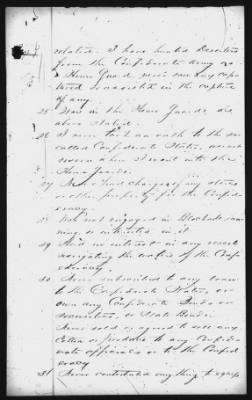 related. I have hunted Deserters
from the Confederate Army as
a Home Guard, never saw any cap
tured nor assisted in the capture
of any.
25 Was in the Home Guards, as
above stated.
26 I never took an oath to the so
called Confederate States, except
when I went into the
Home Guards.
27 Never had charge of any stores
or other property for the Confed
eracy.
28 Was not engaged in Blockade run
ning, or interested in it
29 Had no interest in any vessel
navigating the waters of the Conf
ederacy.
30 Never subscribed to any loan
to the Confederate States, or
own any Confederate Bonds or
securities, or State Bonds.
Never sold or agreed to sell any
Cotton or produce to any Confeder
ate officer or to the Confed
eracy
31 Never contributed anything to